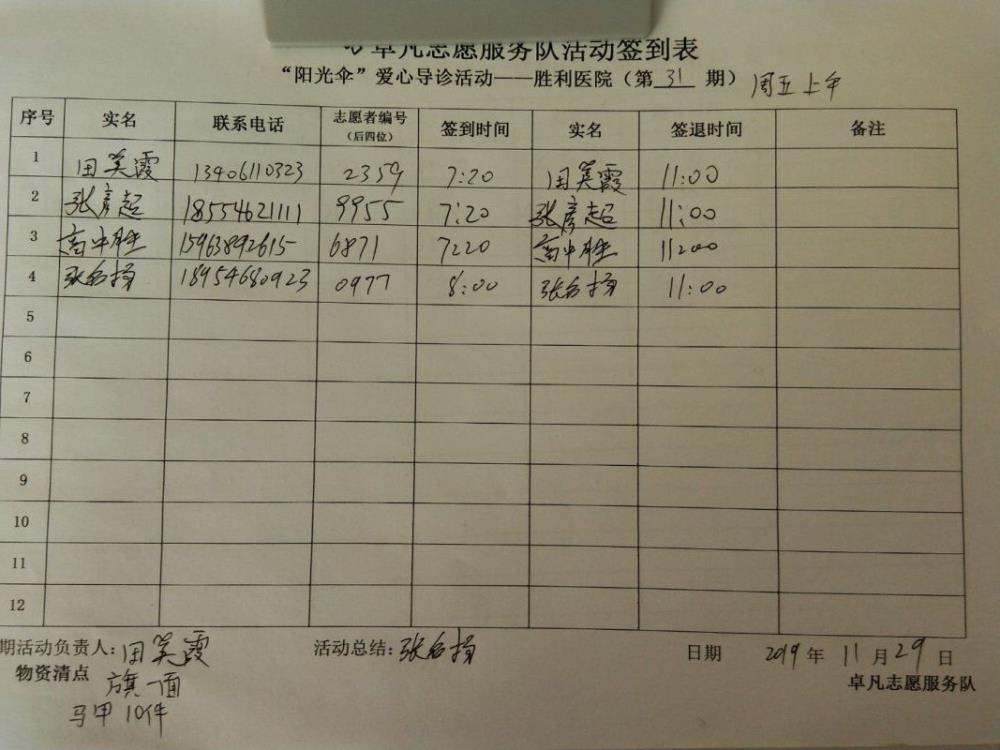 卓凡志愿服务队活动签到表
“阳光伞”爱心导诊活动——胜利医院（第 31 期） 周五上午
序号 实名 联系电话 志愿者编号（后四位） 签到时间 实名 签退时间 备注
1 田美霞 13406110323 2359 7:20 田美霞 11:00
2 张彦超 18554621111 9955 7:20 张彦超 11:00
3 高中胜 15963892615 6871 7220 高中胜 11200
4 张名扬 18954680923 0977 8:00 张名扬 11:00
5
6
7
8
9
10
11
12
期活动负责人：田美霞 活动总结：张名扬 日期 2019 年 11 月 29 日
物资清点 旗一面 卓凡志愿服务队
马甲 10件